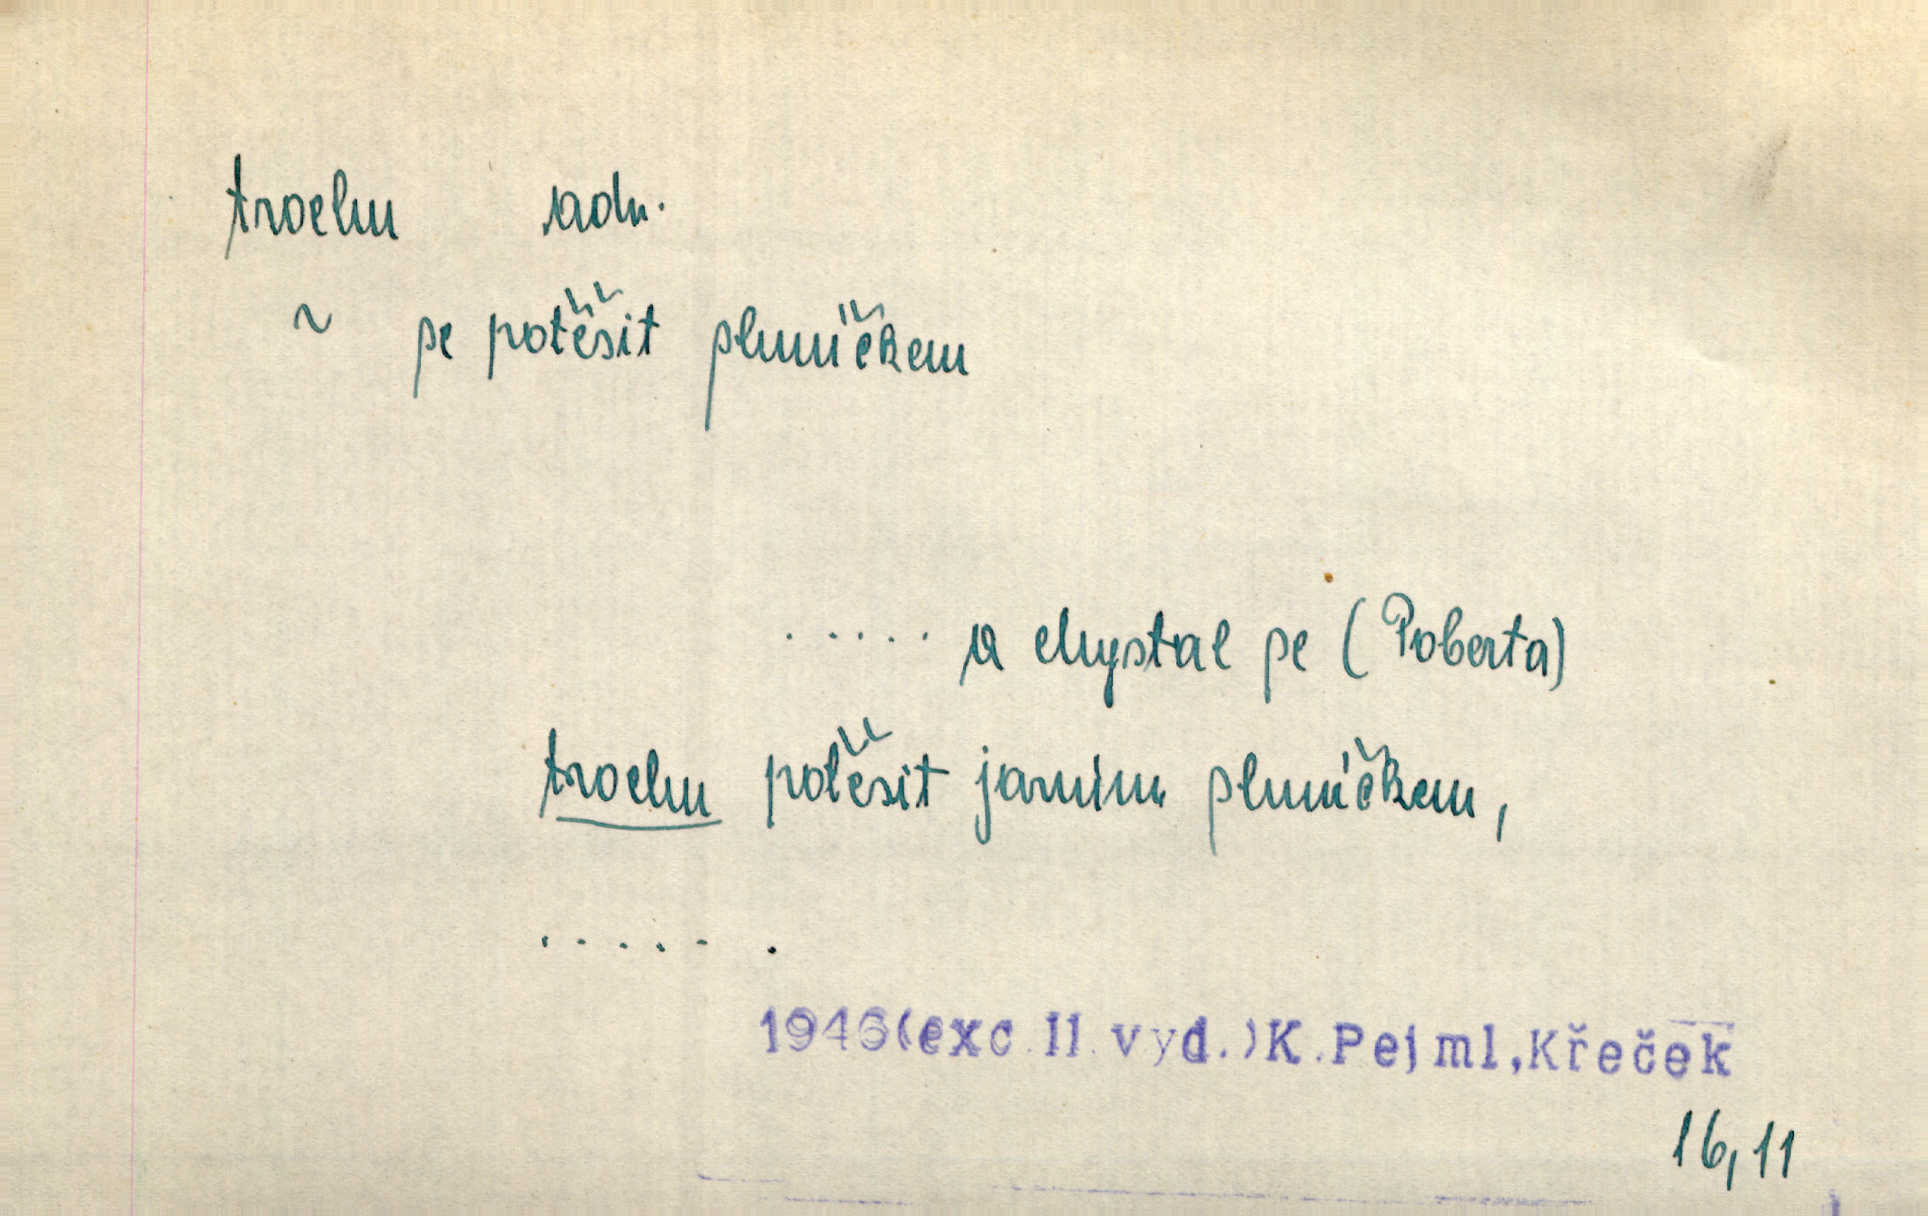 trochu adv.
~ se potěšit sluníčkem
..... a chystal se (Roberta)
trochu potěšit jarním sluníčkem,
..... .
1946(exc.II.vyd.)K.Pejml,Křeček
16,11